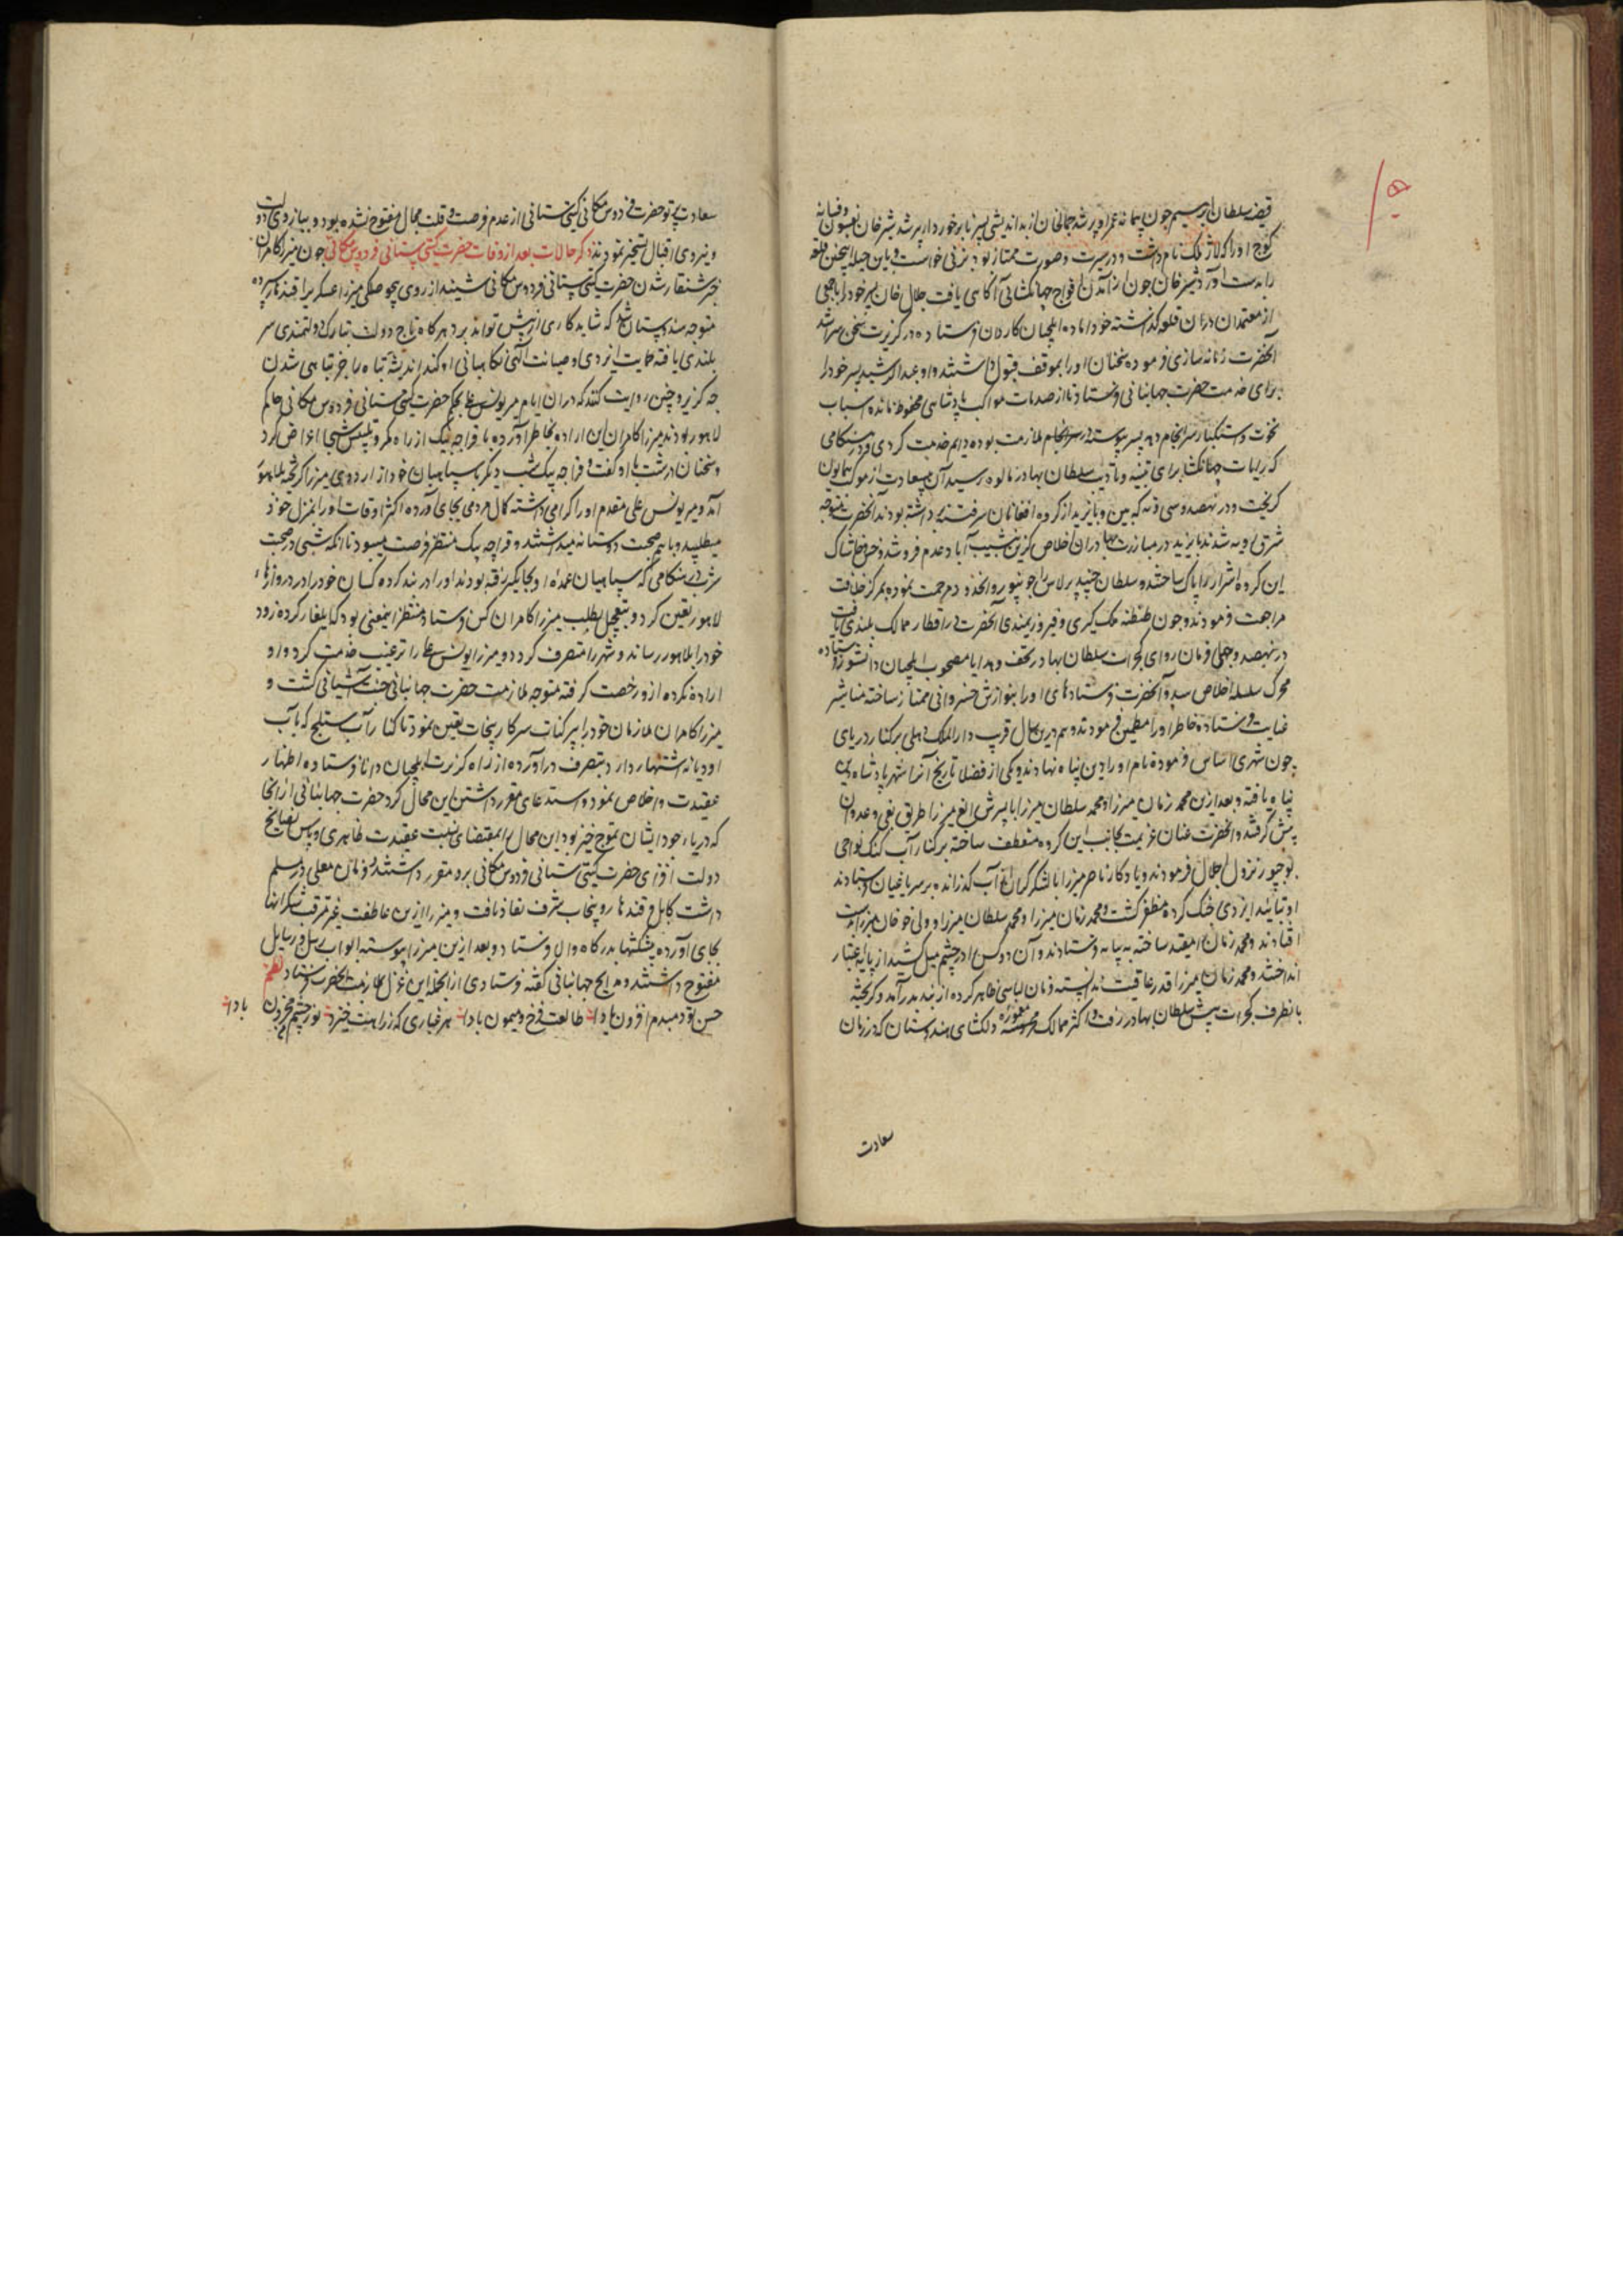 قبضه سلطان ابرهیم چون پیمانه عمر او پر شد جمالخان از بد اندیشی پسر نابرخوردار پر شد شیرخان بفسون و فسانه
کوچ او را که لاد ملک نام داشت و در سیرت و صورت ممتاز بود بزنی خواست و باین حیله اینچنین قلعه
را بدست آورد شیرخان چون از آمدن افواج جهانگشائی آگاهی یافت جلال خان پسر خود را با جمعی
از معتمدان دران قلعه گذاشته خود برآمده ایلچیان کاردان فرستاده در گزیرت سخن سرا شد
آنحضرت زمانه سازی فرموده سخنان او را بموقف قبول داشتند و او عبدالرشید پسر خود را
برای خدمت حضرت جهانبانی فرستاد تا از صدمات مواکب پادشاهی محفوظ مانده اسباب
نخوت و استکبار سرانجام دهد پسر پیوسته در ملازمت بوده دایم خدمت کردی و در هنگامی
که رایات جهانگشا برای تنبیه و تادیب سلطان بهادر بمالوه رسید آن بیسعادت از موکب همایون
گریخت و در نهصد و سی و نه که ببن و بایزید از گروه افغانان سر فتنه برداشته بودند آنحضرت متوجه
شرق رویه شدند بایزید در مبارزت بهادران اخلاص گزین بشیب آباد عدم فرو شد و خس و خاشاک
این گروه اشرار را پاک ساختند و سلطان جنید برلاس را جونپور و آنحدود مرحمت نموده بمرکز خلافت
مراجعت فرمودند و چون طنطنه ملک گیری و فیروزمندی آنحضرت در اقطار ممالک بلندی یافت
در نهصد و چهل فرمان روای گجرات سلطان بهادر تحف و هدایا مصحوب ایلچیان دانشور فرستاده
محرک سلسله اخلاص شد و آنحضرت فرستادهای او را بنوازش خسروانی ممتاز ساخته مناشیر
عنایت فرستاده خاطر او را مطمین فرمودند و هم درین سال قرب دارالملک دهلی بر کنار دریای
جون شهری اساس فرموده نام او را دین پناه نهادند و یکی از فضلا تاریخ آنرا شهر پادشاه دین
پناه یافته و بعد ازین محمد زمان میرزا و محمد سلطان میرزا با پسرش الغ میرزا طریق بغی و عدوان
پیش گرفتند و آنحضرت عنان عزیمت بجانب این گروه منعطف ساخته بر کنار آب گنگ نواحی
بوجپور نزول اجلال فرمودند و یادگار ناصر میرزا با لشکر گران از آب گذرانده بر سر باغیان فرستادند
او بتائید ایزدی جنگ کرده مظفر گشت و محمد زمان میرزا و محمد سلطان میرزا و ولی خوب میرزا بدست
افتادند و محمد زمان را مقید ساخته به بیانه فرستادند و آن دو کس را در چشم میل کشیده از پایه اعتبار
انداختند و محمد زمان میرزا قدر عافیت ندانسته فرمان لباسی ظاهر کرده از بند بدر آمد و گریخته
بانطرف گجرات پیش سلطان بهادر رفت و اکثر ممالک معموره محروسه دلکشای هندوستان که در زمان
سعادت
سعادت پرتو حضرت فردوس مکانی گیتی ستانی از عدم فرصت و قلت مجال مفتوح نشده بود و ببازوی دولت
و نیروی اقبال تسخیر نمودند ذکر حالات بعد از وفات حضرت گیتی ستانی فردوس مکانی چون میرزا کامران
خبر شنقار شدن حضرت گیتی ستانی فردوس مکانی شنید از روی بیحوصلگی میرزا عسکری را قندهار سپرده
متوجه هندوستان شد که شاید کاری از پیش تواند برد هرگاه تاج دولت بتارک دولتمندی سر
بلندی یافته حمایت ایزدی و صیانت الهی نگاهبانی او کند اندیشه تباه را جز تباهی شدن
چه گزیر و چنین روایت کنند که دران ایام میر یونس علی بحکم حضرت گیتی ستانی فردوس مکانی حاکم
لاهور بودند میرزا کامران این اراده بخاطر آورده با قراچه بیگ از راه مکر و تلبیس شبی اعراض کرد
و سخنان درشت با او گفت و قراچه بیگ شب دیگر با سپاهیان خود از اردوی میرزا گریخته بلاهور
آمد و میر یونس علی مقدم او را گرامی داشته کمال مردمی بجای آورده اکثر اوقات او را بمنزل خود
میطلبید و با هم صحبت دوستانه میداشتند و قراچه بیگ منتظر فرصت میبود تا آنکه شبی در صحبت
شرب هنگامی که سپاهیان عمده او بجایگیر رفته بودند او را در بند کرده کسان خود را در دروازهاء
لاهور تعین کرد و بتعجیل بطلب میرزا کامران کس فرستاد منتظر اینمعنی بود که ایلغار کرده زود
خود را بلاهور رساند و شهر را متصرف گردد و میرزا یونس علی را ترغیب خدمت کرد و او
اراده نکرده از و رخصت گرفته متوجه ملازمت حضرت جهانبانی جنت آشیانی گشت و
میرزا کامران ملازمان خود را بپرگنات سرکار پنجاب تعین نمود تا کنار آب ستلج که بآب
اودیانه اشتهار دارد بتصرف درآورده از راه گزیرت ایلچیان دانا فرستاده اظهار
عقیدت و اخلاص نمود و استدعای مقرر داشتن این محال کرد حضرت جهانبانی از آنجا
که دریاء جود ایشان تموج خیز بود این محال را بمقتضای نسبت عقیدت ظاهری و پاس نصایح
دولت افزای حضرت گیتی ستانی فردوس مکانی برو مقرر داشتند و فرمان معلی در مسلم
داشت کابل و قندهار و پنجاب شرف نفاذ یافت و میرزا ازین عاطفت غیر مترقب شکرانها
بجای آورده پیشکشها بدرگاه والا فرستاد و بعد ازین میرزا پیوسته ابواب رسل و رسایل
مفتوح داشتند و مدایح جهانبانی گفته فرستادی ازانجمله این غزل بملازمت آنحضرت فرستاد نظم
حسن تو دمبدم افزون بادا طالعت فرخ و میمون بادا هر غباری که ز راهت خیزد نور چشم من محزون بادا